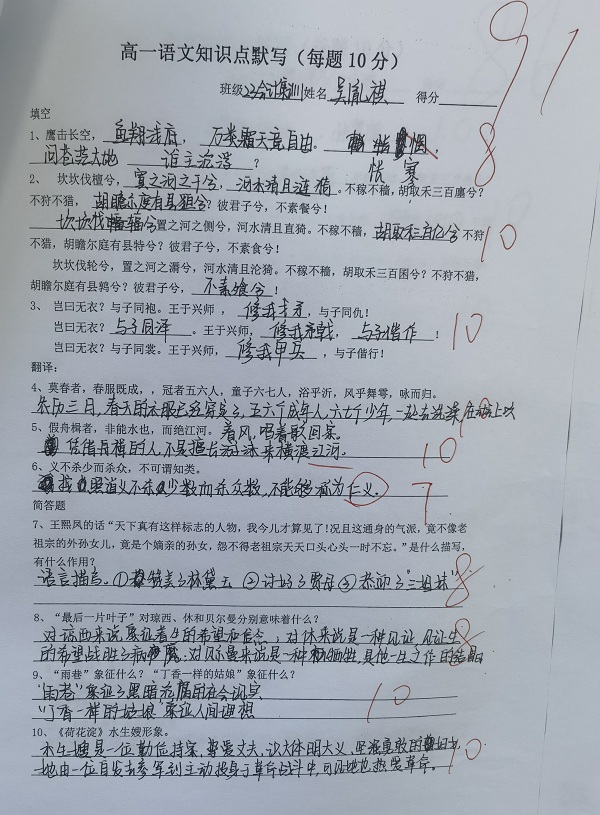 高一语文知识点默写（每题10分）
91
班级22会计集训 姓名 吴胤祺 得分
填空
1、鹰击长空，鱼翔浅底，万类霜天竞自由。怅寥廓，
问苍茫大地 谁主沉浮？ 8
2、 坎坎伐檀兮，寘之河之干兮，河水清且涟猗。不稼不穑，胡取禾三百廛兮？
不狩不猎，胡瞻尔庭有县狟兮？彼君子兮，不素餐兮！
坎坎伐辐兮置之河之侧兮，河水清且直猗。不稼不穑，胡取禾三百亿兮 不狩 10
不猎，胡瞻尔庭有县特兮？彼君子兮，不素食兮！
坎坎伐轮兮，置之河之漘兮，河水清且沦猗。不稼不穑，胡取禾三百囷兮？不狩不猎，
胡瞻尔庭有县鹑兮？彼君子兮，不素飧兮！
3、 岂曰无衣？与子同袍。王于兴师 ，修我戈矛，与子同仇！
岂曰无衣？与子同泽。王于兴师，修我矛戟，与子偕作！ 10
岂曰无衣？与子同裳。王于兴师，修我甲兵，与子偕行！
翻译：
4、莫春者，春服既成，，冠者五六人，童子六七人，浴乎沂，风乎舞雩，咏而归。
三日，春天的衣服已经穿定了，五六个成年人，六七个少年，一起去洗澡在
5、假舟楫者，非能水也，而绝江河。 着风，唱着歌回家。
凭借舟楫的人，不是擅长游泳来横渡江河。 10
6、义不杀少而杀众，不可谓知类。
道义不杀少数而杀众数，不能够称为仁义。 7
简答题
7、王熙凤的话“天下真有这样标志的人物，我今儿才算见了!况且这通身的气派，竟不像老
祖宗的外孙女儿，竟是个嫡亲的孙女，怨不得老祖宗天天口头心头一时不忘。”是什么描写，
有什么作用？
语言描写。①赞美了林黛玉 ②讨好了贾母 ③恭响了“三姐妹” 8
8、“最后一片叶子”对琼西、休和贝尔曼分别意味着什么？
对琼西来说，象征着生的希望和信念；对休来说是一种见证，见证生 8
的希望战胜了病魔；对贝尔曼来说是一种牺牲，是他一生之作的
9、“雨巷”象征什么？“丁香一样的姑娘”象征什么？
“雨巷”象征了黑暗沧腐的社会现实 10
“丁香一样的姑娘”象征人间理想
10、《荷花淀》水生嫂形象。
水生嫂是一位勤俭持家，尊爱丈夫，识大体明大义，坚强勇敢的妇女， 10
她由一位自发去参军到主动投身于革命战斗中，可见她也热爱革命。